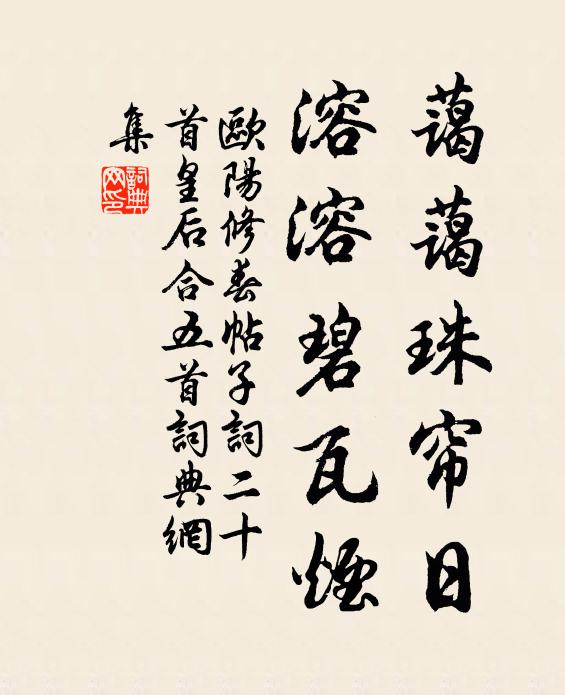 藹藹珠帘日
溶溶碧瓦煙
歐陽修春帖子詞二十
首皇后合五首詞典網
集
詞典
网印